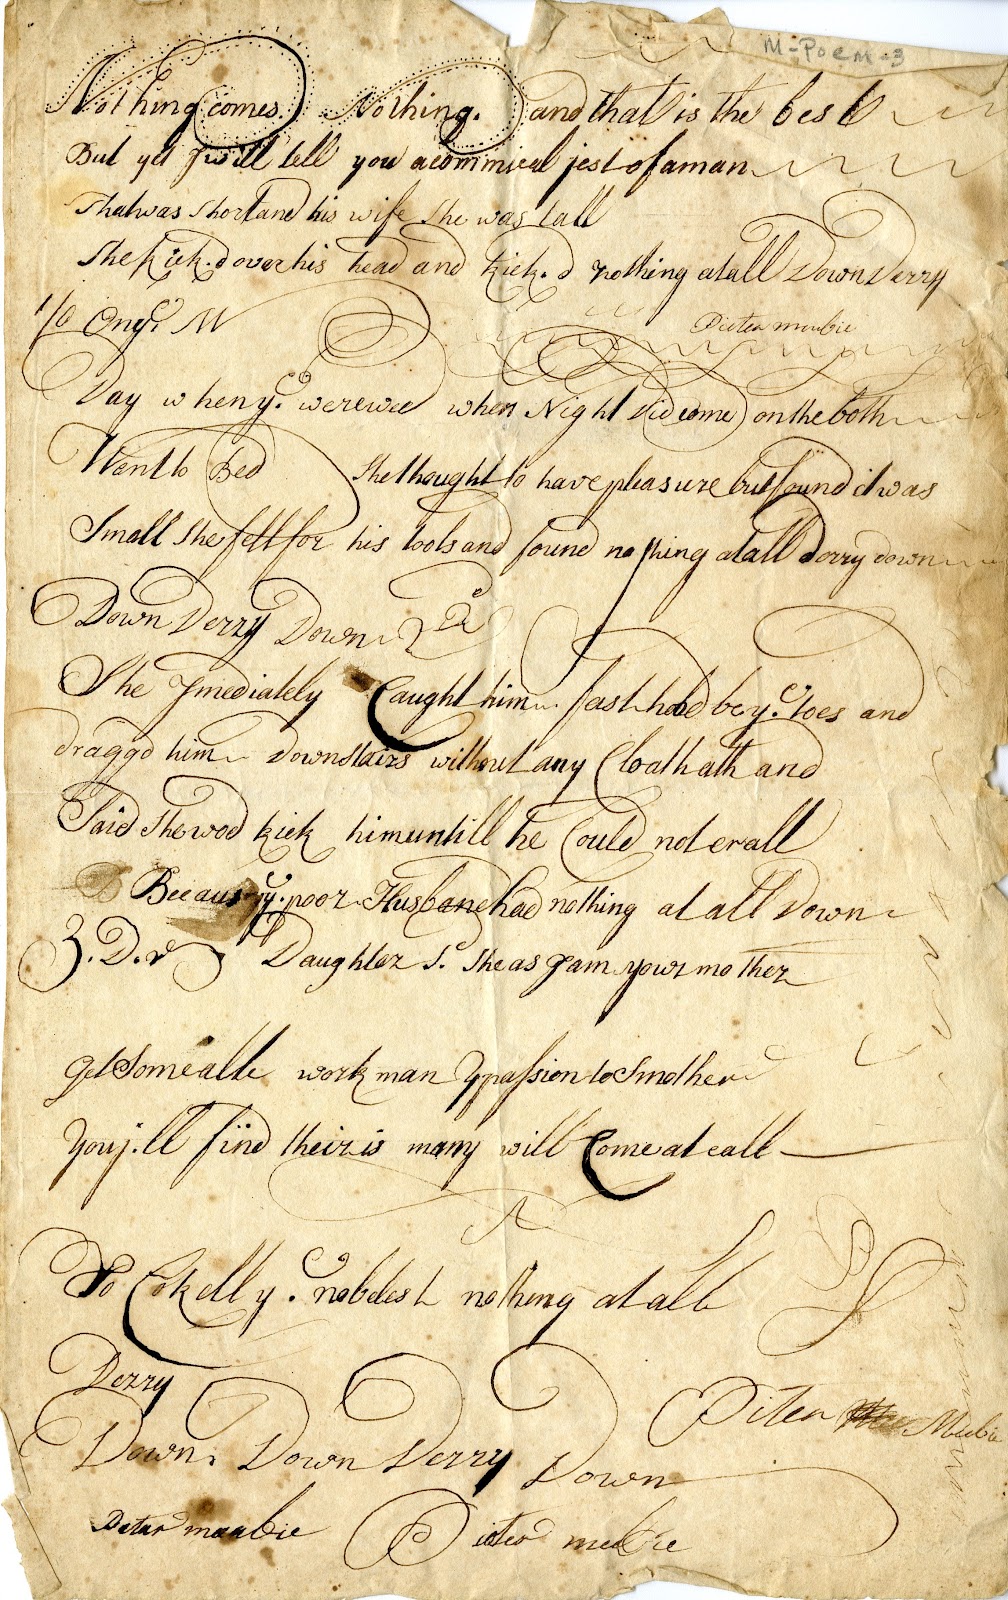 M-Poem-3
Nothing comes Nothing. and that is the best
But yet I will tell you a commical jest of a man
That was Short and his wife She was tall
She kick.d over his head and kick.d nothing at all Down Derry
1/0 Ony.e M
Pieter meubie
Day when y.e were wed when Night did come on the both
Went to Bed She thought to have pleasure but found it was
Small She felt for his tools and found nothing at all Dorry down
Down Derry Down 2
She Ymediately Caught him fast hold be y.e toes and
draggd him Downstairs without any Cloathath and
Said She wod kick him untill he Could not crall
Becaus y.e poor Husband had nothing at all Down
3. D. Daughter S. She as I am your mother
Get Some able workman Y passion to Smother
Youj.ll find theirs is many will Come at call
So y.e nobelest nothing at all
Derry
Down Down Derry Down
Pieter Meubie
Peter maabie Pieter meebie